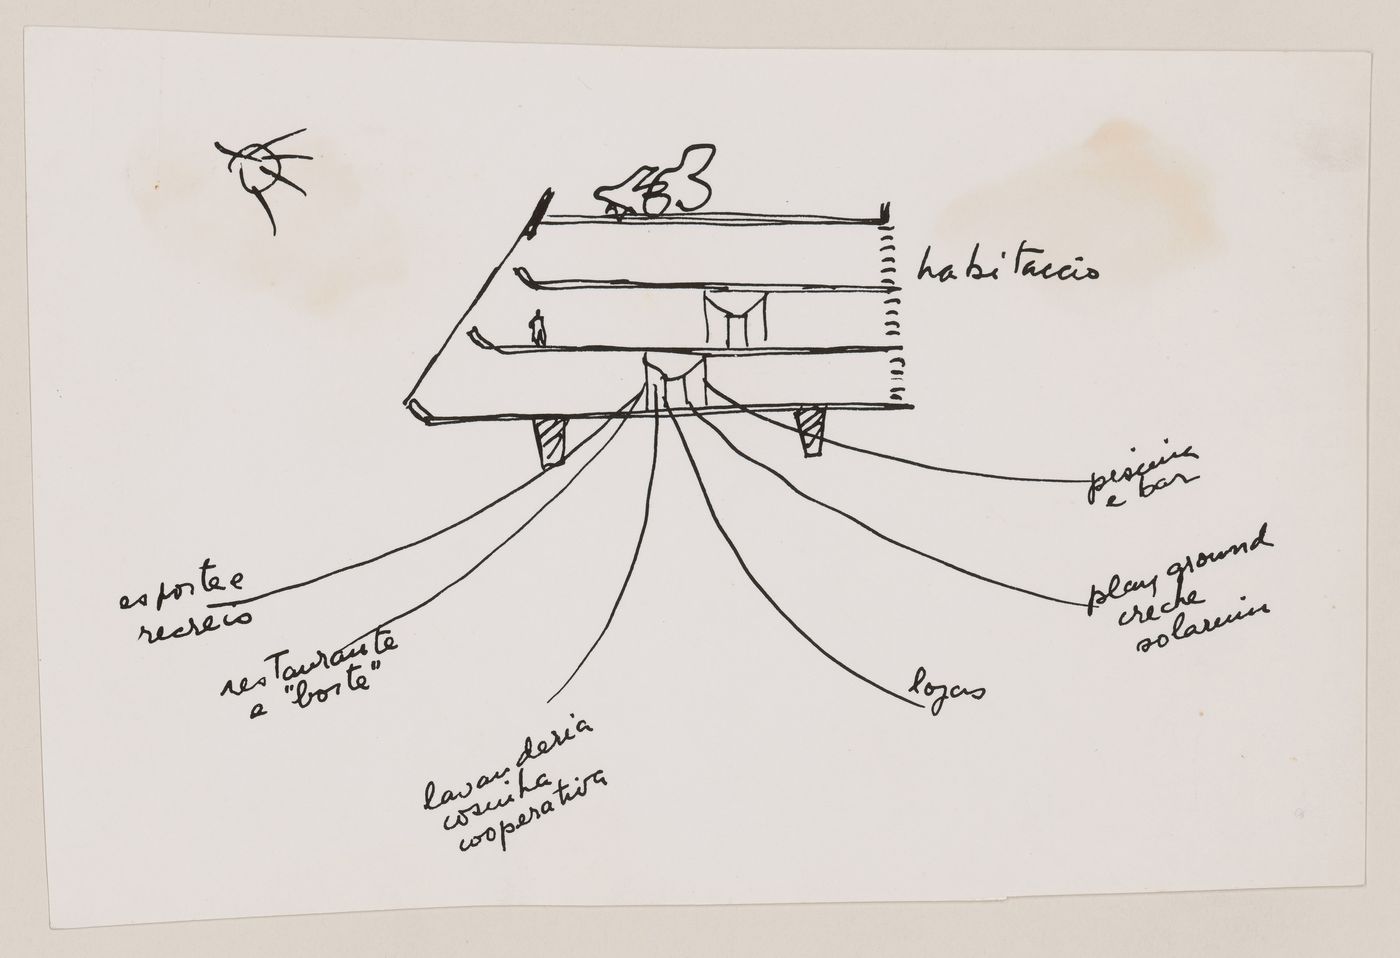 habitaccio
piscina
e bar
esporte e
recreio
play ground
creche
solarium
restaurante
e "boite"
lojas
lavanderia
cosinha
cooperativa